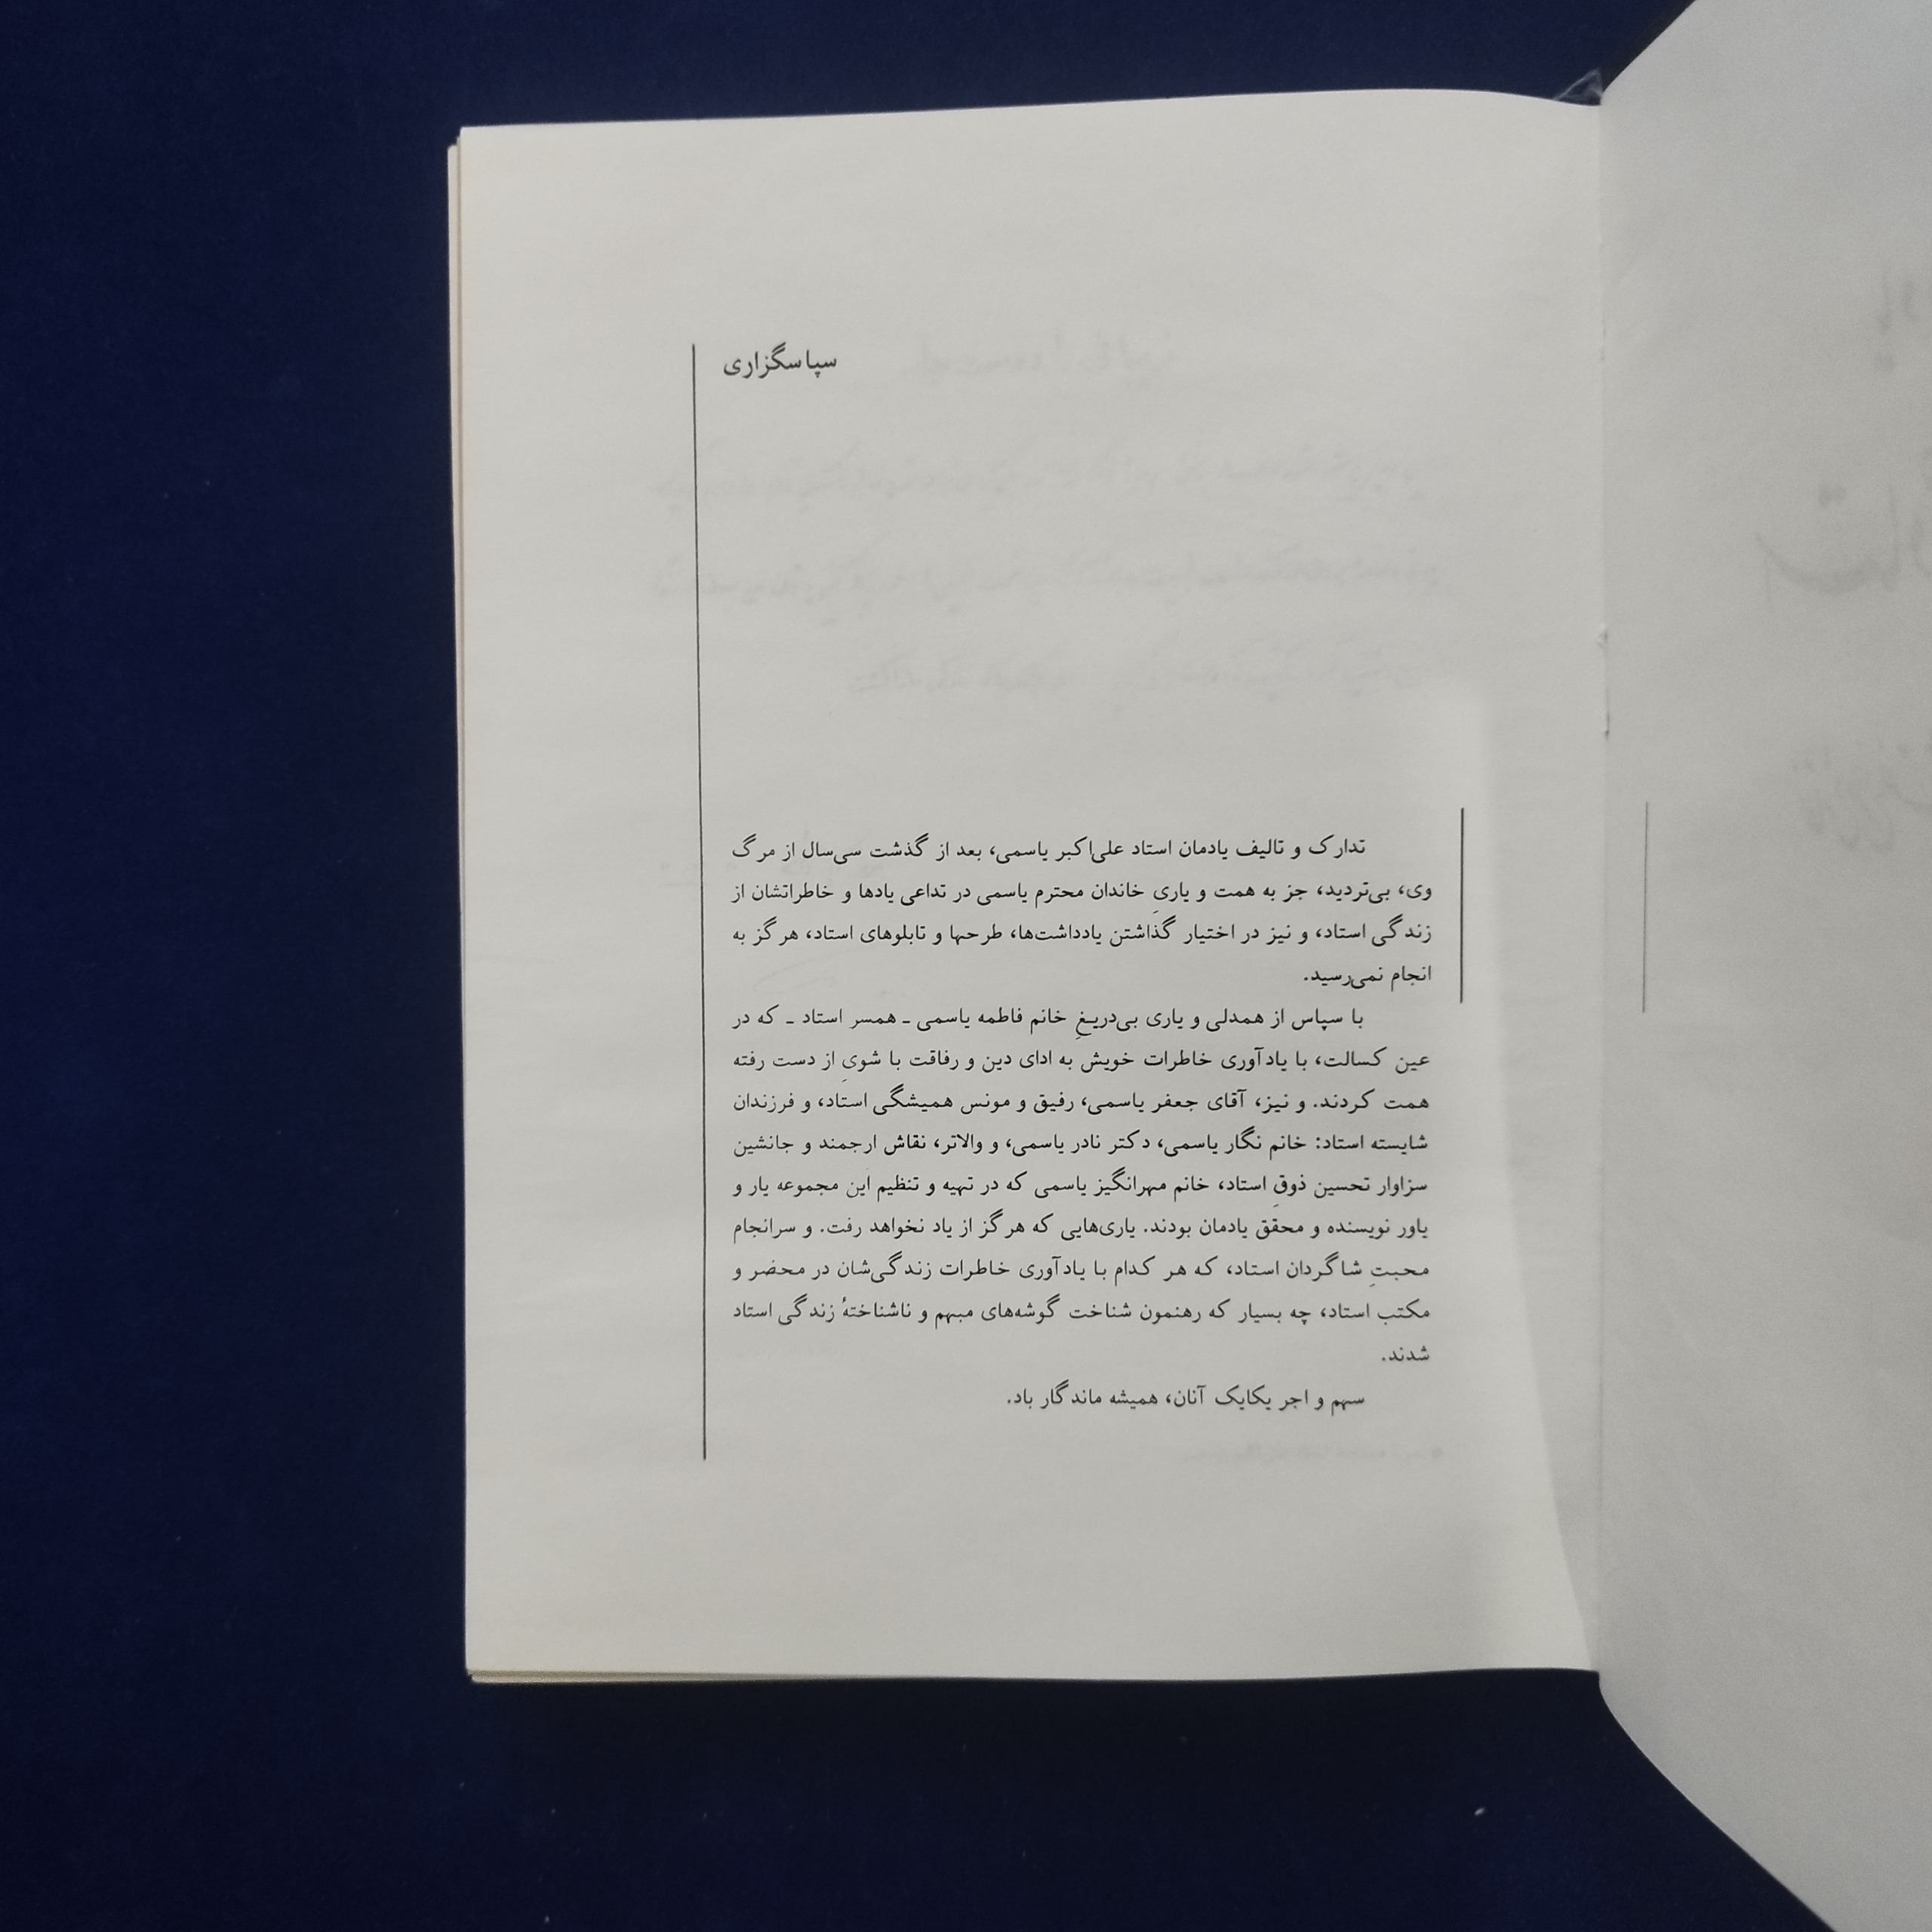 سپاسگزاری
تدارک و تالیف یادمان استاد علی‌اکبر یاسمی، بعد از گذشت سی‌سال از مرگ
وی، بی‌تردید، جز به همت و یاریِ خاندان محترم یاسمی در تداعی یادها و خاطراتشان از
زندگی استاد، و نیز در اختیار گذاشتن یادداشت‌ها، طرحها و تابلوهای استاد، هرگز به
انجام نمی‌رسید.
با سپاس از همدلی و یاری بی‌دریغِ خانم فاطمه یاسمی ـ همسر استاد ـ که در
عین کسالت، با یادآوری خاطرات خویش به ادای دین و رفاقت با شویِ از دست رفته
همت کردند. و نیز، آقای جعفر یاسمی، رفیق و مونس همیشگی استاد، و فرزندان
شایسته استاد: خانم نگار یاسمی، دکتر نادر یاسمی، و والاتر، نقاش ارجمند و جانشین
سزاوار تحسین ذوقِ استاد، خانم مهرانگیز یاسمی که در تهیه و تنظیم این مجموعه یار و
یاور نویسنده و محقق یادمان بودند. یاری‌هایی که هرگز از یاد نخواهد رفت. و سرانجام
محبتِ شاگردان استاد، که هر کدام با یادآوری خاطرات زندگی‌شان در محضر و
مکتب استاد، چه بسیار که رهنمون شناخت گوشه‌های مبهم و ناشناختهٔ زندگی استاد
شدند.
سهم و اجر یکایک آنان، همیشه ماندگار باد.